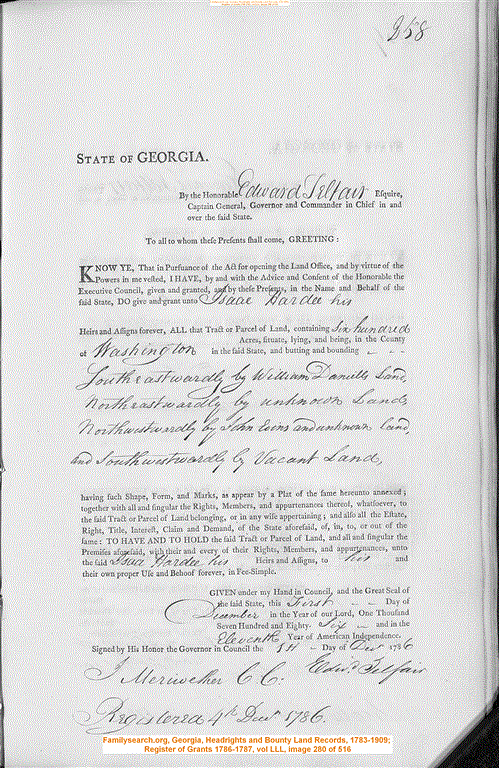 258
STATE OF GEORGIA.
By the Honorable Edward Telfair Esquire,
Captain General, Governor and Commander in Chief in and
over the said State.
To all to whom these Presents shall come, GREETING:
KNOW YE, That in Pursuance of the Act for opening the Land Office, and by virtue of the
Powers in me vested, I HAVE, by and with the Advice and Consent of the Honorable the
Executive Council, given and granted, and by these Presents, in the Name and Behalf of the
said State, DO give and grant unto Isaac Hardee his
Heirs and Assigns forever, ALL that Tract or Parcel of Land, containing Six hundred
Acres, situate, lying, and being, in the County
of Washington in the said State, and butting and bounding
Southeastwardly by William Daniells Land,
Northeastwardly by unknown Land,
Northwestwardly by John Evins and unknown Land,
and Southwestwardly by Vacant Land,
having such Shape, Form, and Marks, as appear by a Plat of the same hereunto annexed;
together with all and singular the Rights, Members, and appurtenances thereof, whatsoever, to
the said Tract or Parcel of Land belonging, or in any wise appertaining; and also all the Estate,
Right, Title, Interest, Claim and Demand, of the State aforesaid, of, in, to, or out of the
same: TO HAVE AND TO HOLD the said Tract or Parcel of Land, and all and singular the
Premises aforesaid, with their and every of their Rights, Members, and appurtenances, unto
the said Isaac Hardee his Heirs and Assigns, to his and
their own proper Use and Behoof forever, in Fee-Simple.
GIVEN under my Hand in Council, and the Great Seal of
the said State, this First Day of
December in the Year of our Lord, One Thousand
Seven Hundred and Eighty. Six and in the
Eleventh Year of American Independence.
Signed by His Honor the Governor in Council the 1st Day of Decr 1786
J Meriwether C C: Edwd. Telfair
Registered 4th Decr 1786.
Familysearch.org, Georgia, Headrights and Bounty Land Records, 1783-1909;
Register of Grants 1786-1787, vol LLL, image 280 of 516